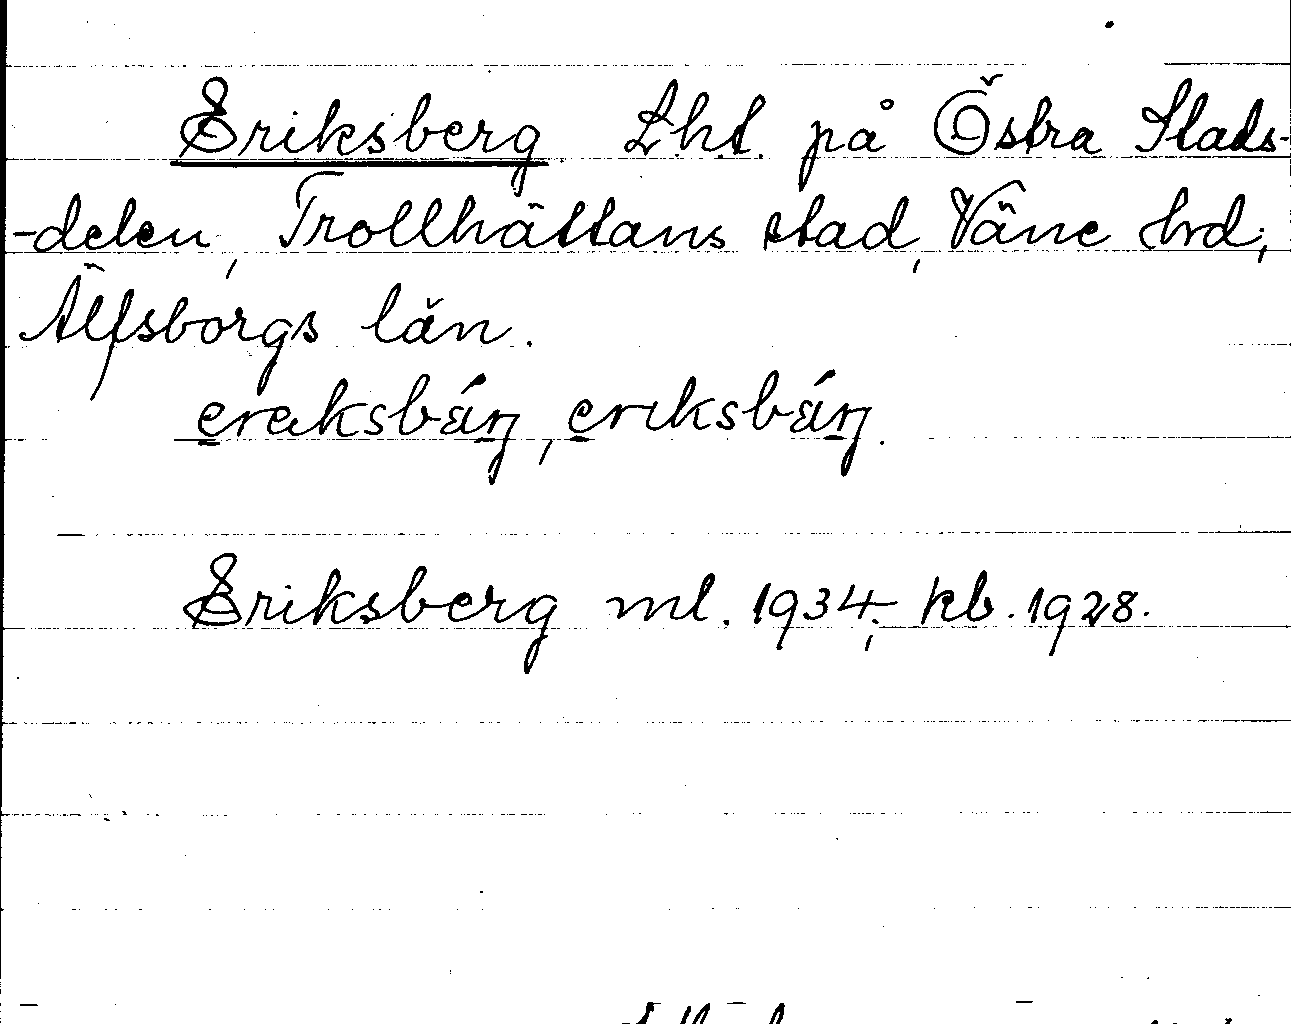 Eriksberg Lht. på Östra Stads-
-delen, Trollhättans stad, Väne hrd,
Älfsborgs län.
ereksbárj, eriksbárj.
Eriksberg ml. 1934; kb. 1928.